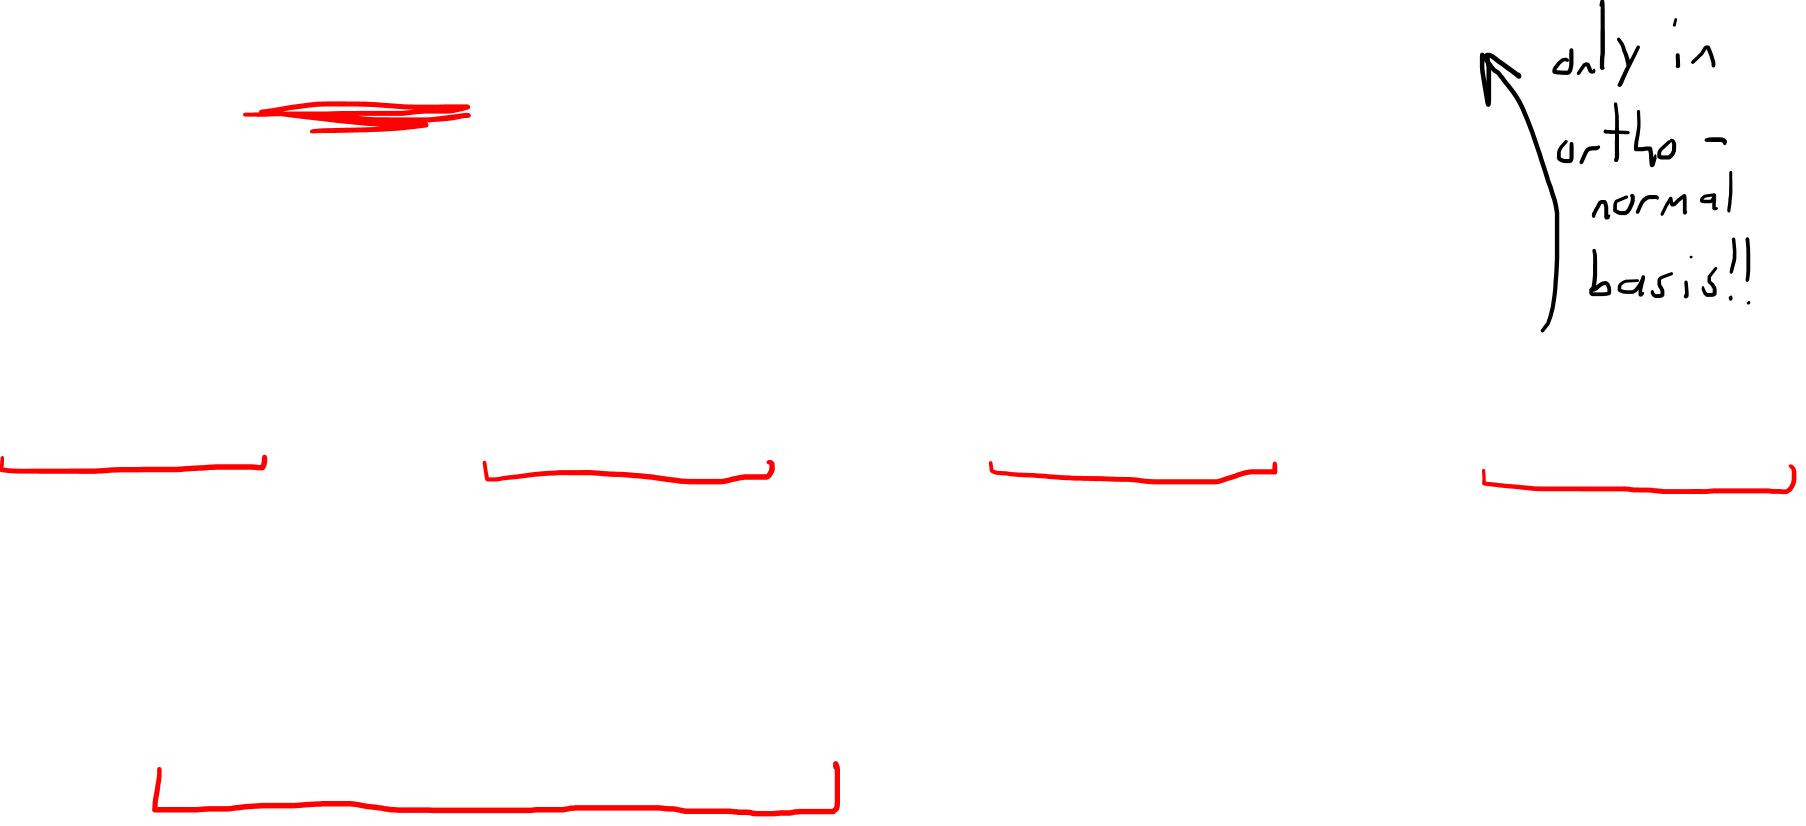 only in
ortho -
normal
basis!!